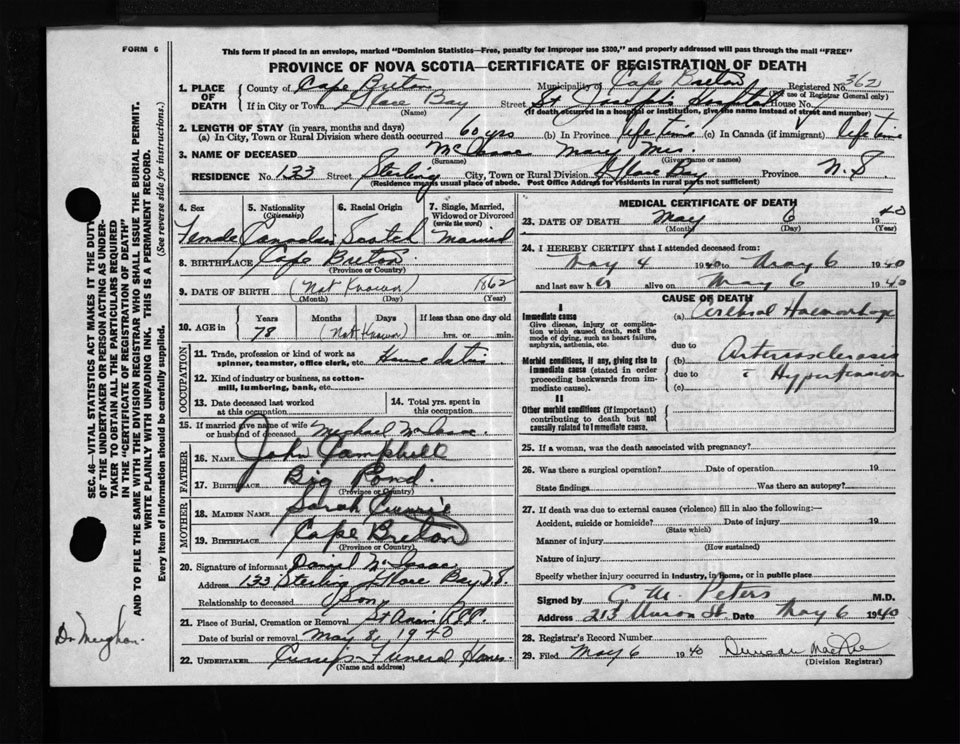 FORM 6
This form if placed in an envelope, marked "Dominion Statistics—Free, penalty for improper use $300," and properly addressed will pass through the mail "FREE"
PROVINCE OF NOVA SCOTIA—CERTIFICATE OF REGISTRATION OF DEATH
1. PLACE OF DEATH County of Cape Breton Municipality of Cape Breton Registered No. 3621
(For use of Registrar General only)
If in City or Town Glace Bay Street St Joseph's Hospital House No.
(Name) (If death occurred in a hospital or institution, give the name instead of street and number)
2. LENGTH OF STAY (in years, months and days)
(a) In City, Town or Rural Division where death occurred 60 yrs (b) In Province life time (c) In Canada (if immigrant) life time
3. NAME OF DECEASED McIsaac Mary Mrs.
(Surname) (Given name or names)
RESIDENCE No. 133 Street Sterling City, Town or Rural Division Glace Bay Province N.S.
(Residence means usual place of abode. Post Office Address for residents in rural parts not sufficient)
4. Sex 5. Nationality (Citizenship) 6. Racial Origin 7. Single, Married, Widowed or Divorced (write the word)
Female Canadian Scotch Married
8. BIRTHPLACE Cape Breton
(Province or Country)
9. DATE OF BIRTH (Not Known) 1862
(Month) (Day) (Year)
10. AGE in Years Months Days If less than one day old
78 (Not Known) hrs. or min.
OCCUPATION
11. Trade, profession or kind of work as spinner, teamster, office clerk, etc.
12. Kind of industry or business, as cotton-mill, lumbering, bank, etc.
13. Date deceased last worked at this occupation
14. Total yrs. spent in this occupation
15. If married give name of wife or husband of deceased Michael McIsaac
FATHER
16. NAME John Campbell
17. BIRTHPLACE Big Pond
(Province or Country)
MOTHER
18. MAIDEN NAME Sarah Currie
19. BIRTHPLACE Cape Breton
(Province or Country)
20. Signature of informant Daniel McIsaac
Address 133 Sterling Glace Bay N.S.
Relationship to deceased Son
21. Place of Burial, Cremation or Removal St Anns
Date of burial or removal May 8, 1940
22. UNDERTAKER Funeral Home
(Name and address)
MEDICAL CERTIFICATE OF DEATH
23. DATE OF DEATH May 6 1940
(Month) (Day) (Year)
24. I HEREBY CERTIFY that I attended deceased from:
May 4 1940 to May 6 1940
and last saw her alive on May 6 1940
CAUSE OF DEATH
I
Immediate cause
Give disease, injury or complication which caused death, not the mode of dying, such as heart failure, asphyxia, asthenia, etc.
(a) Cerebral Haemorrhage
due to
Morbid conditions, if any, giving rise to immediate cause (stated in order proceeding backwards from immediate cause).
(b) Arteriosclerosis
due to Hypertension
(c)
II
Other morbid conditions (if important) contributing to death but not causally related to immediate cause.
25. If a woman, was the death associated with pregnancy?
26. Was there a surgical operation? Date of operation 19
State findings Was there an autopsy?
27. If death was due to external causes (violence) fill in also the following:—
Accident, suicide or homicide? Date of injury 19
(State which)
Manner of injury
(How sustained)
Nature of injury
Specify whether injury occurred in industry, in home, or in public place
Signed by C. M. Peters M.D.
Address 213 St. Date May 6 1940
28. Registrar's Record Number
29. Filed May 6 1940 Duncan MacRae
(Division Registrar)
SEC. 46—VITAL STATISTICS ACT MAKES IT THE DUTY
OF THE UNDERTAKER OR PERSON ACTING AS UNDER-
TAKER TO OBTAIN ALL THE PARTICULARS REQUIRED
IN THE "CERTIFICATE OF REGISTRATION OF DEATH"
AND TO FILE THE SAME WITH THE DIVISION REGISTRAR WHO SHALL ISSUE THE BURIAL PERMIT.
WRITE PLAINLY WITH UNFADING INK. THIS IS A PERMANENT RECORD.
Every item of information should be carefully supplied. (See reverse side for instructions.)
Dr Meighan.